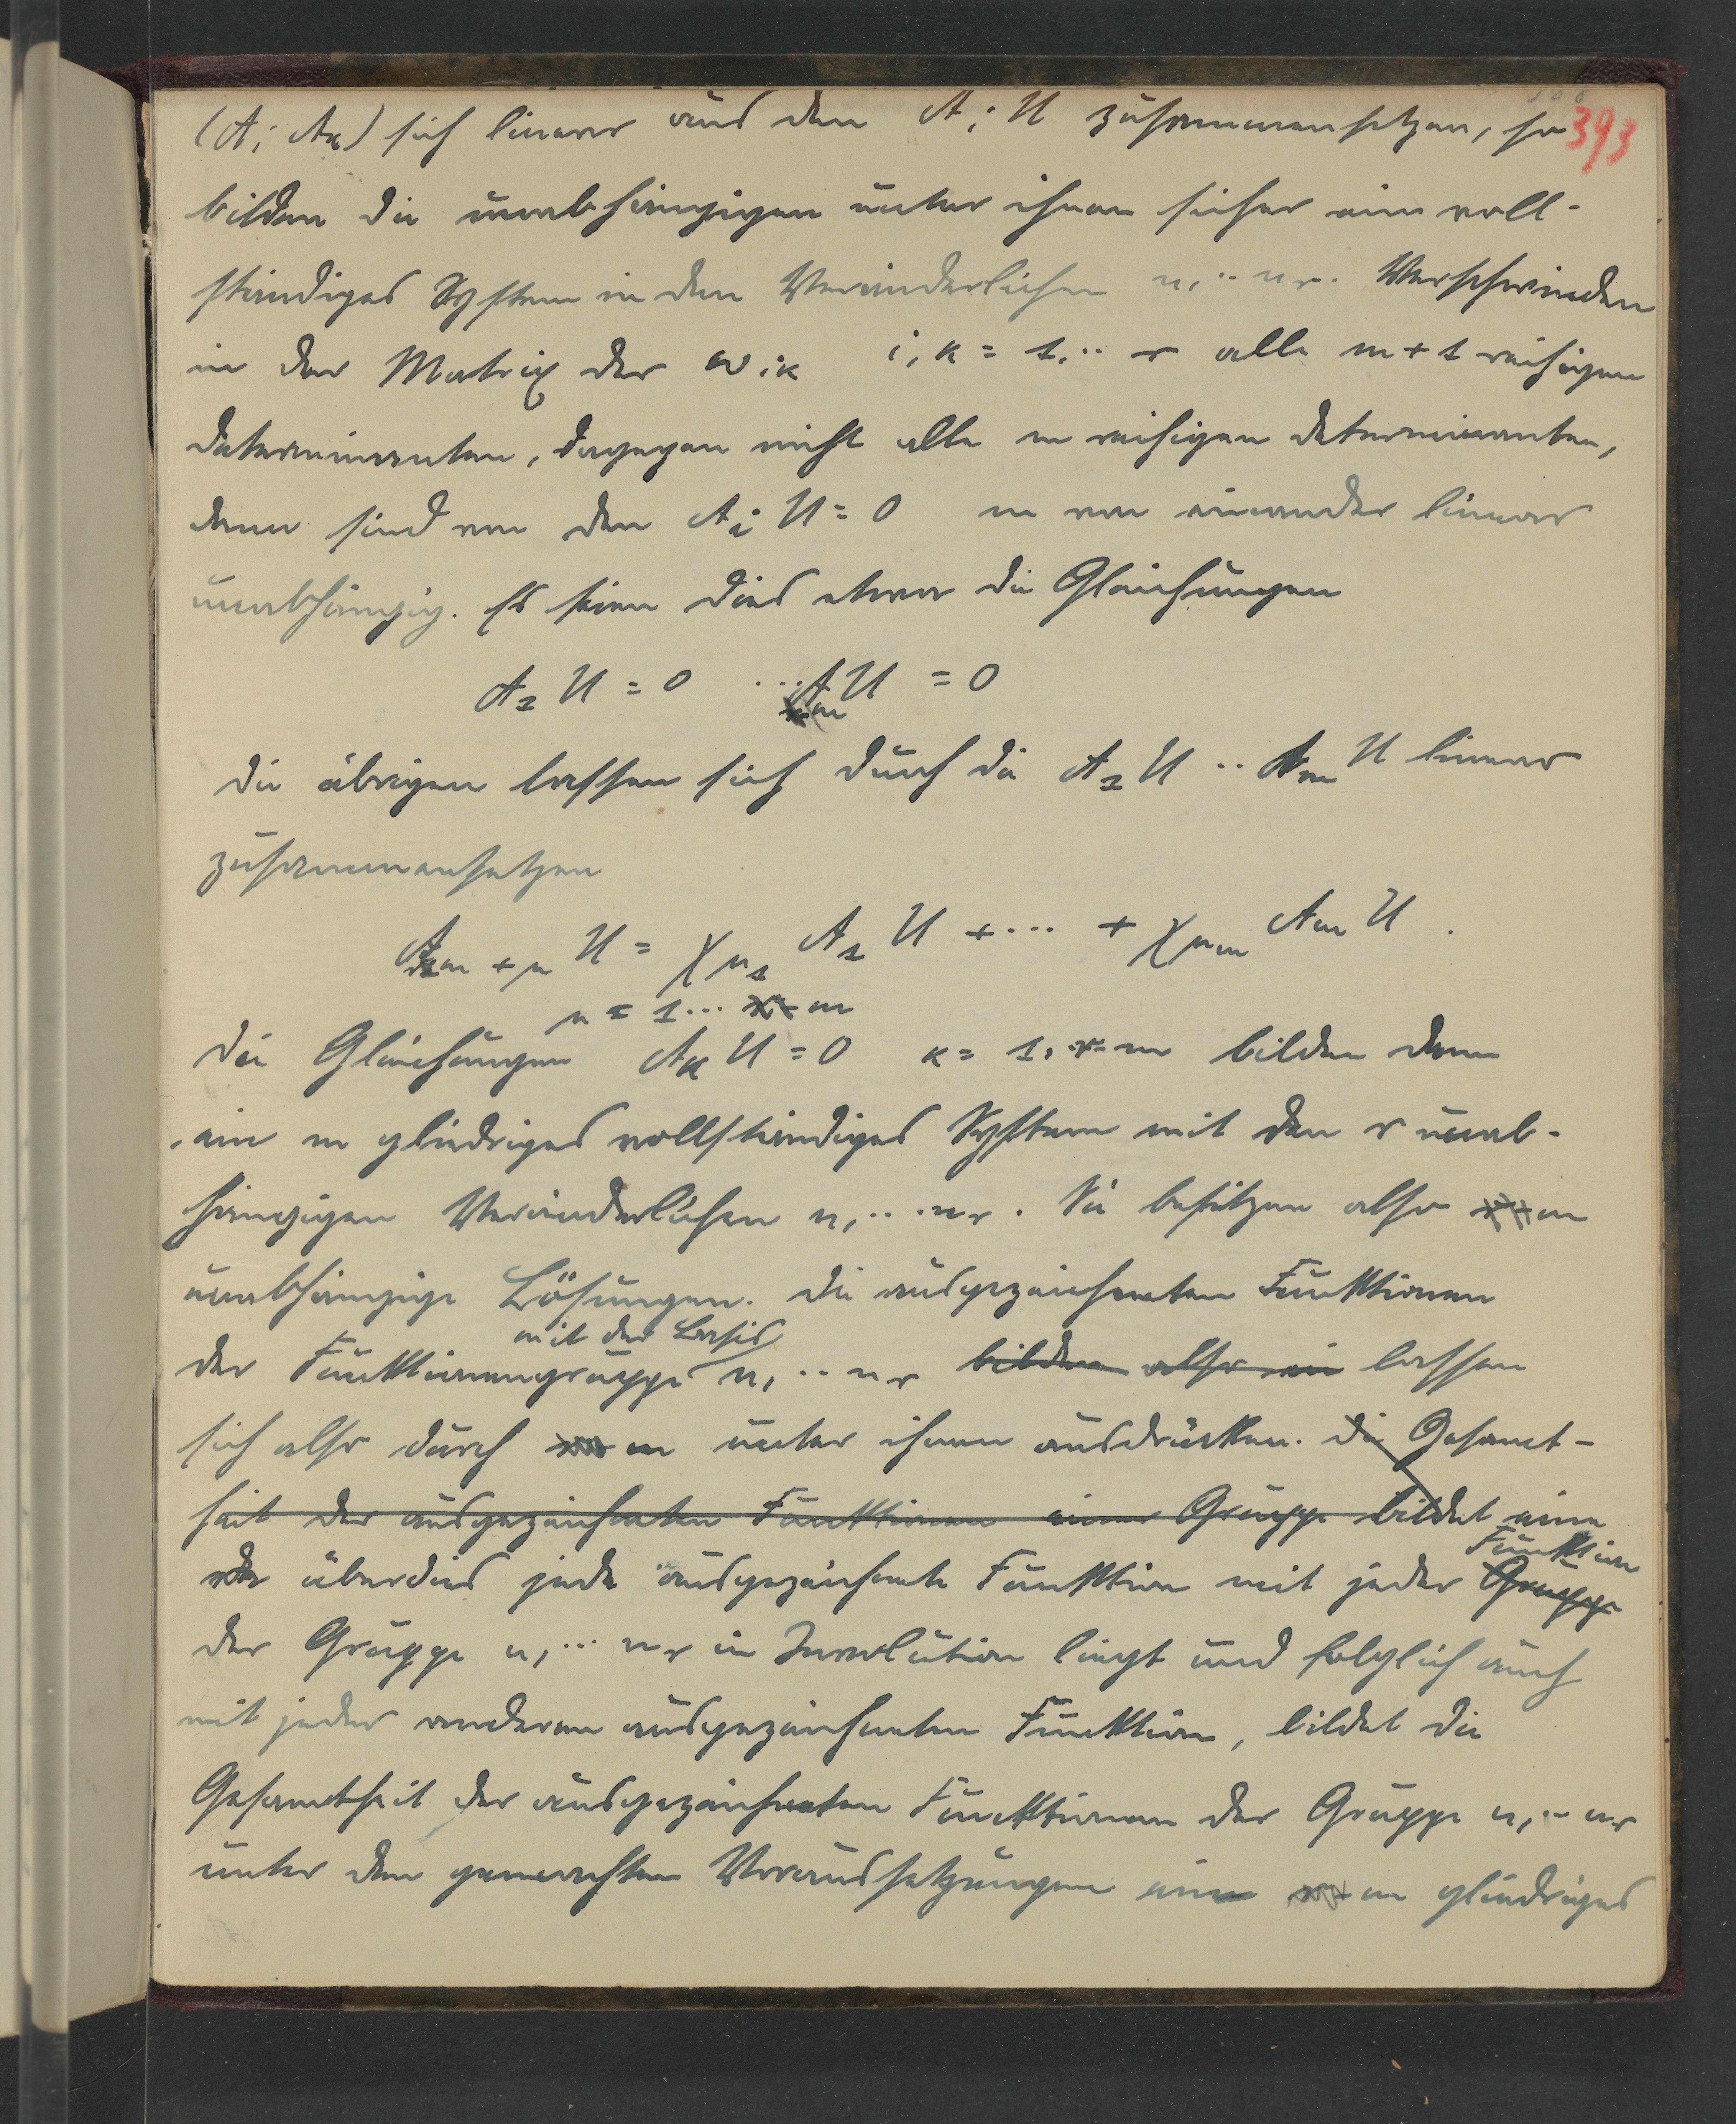 393
(A_i A_κ) sich linear aus den A_i U zusammensetzen, so
bilden die unabhängigen unter ihnen sicher ein voll-
ständiges System in den Veränderlichen u_1 ·· u_r. Verschwinden
in der Matrix der ω_iκ i, κ = 1, ·· r alle m + 1 reihigen
Determinanten, dagegen nicht alle m reihigen Determinanten,
dann sind von den A_i U = 0 m von einander linear
unabhängig. Es seien dies etwa die Gleichungen
A_1 U = 0 ... A_m U = 0
Die übrigen lassen sich durch die A_1 U ·· A_m U linear
zusammensetzen
A_{m+μ} U = χ_{μ1} A_1 U + ··· + χ_{μm} A_m U .
μ = 1 ... r-m
Die Gleichungen A_κ U = 0 κ = 1, ·· m bilden dann
ein m gliedriges vollständiges System mit den r unab-
hängigen Veränderlichen u_1 ·· u_r. Sie besitzen also r-m
unabhängige Lösungen. Die ausgezeichneten Funktionen
mit der Basis
der Funktionengruppe u_1 ·· u_r bilden also ein lassen
sich also durch m unter ihnen ausdrücken. Die Gesamt-
heit der ausgezeichneten Funktionen einer Gruppe bildet eine
Funktion
da überdies jede ausgezeichnete Funktion mit jeder Gruppe
der Gruppe u_1 ··· u_r in Involution liegt und folglich auch
mit jeder anderen ausgezeichneten Funktion, bildet die
Gesamtheit der ausgezeichneten Funktionen der Gruppe u_1 ·· u_r
unter den gemachten Voraussetzungen ein m gliedriges